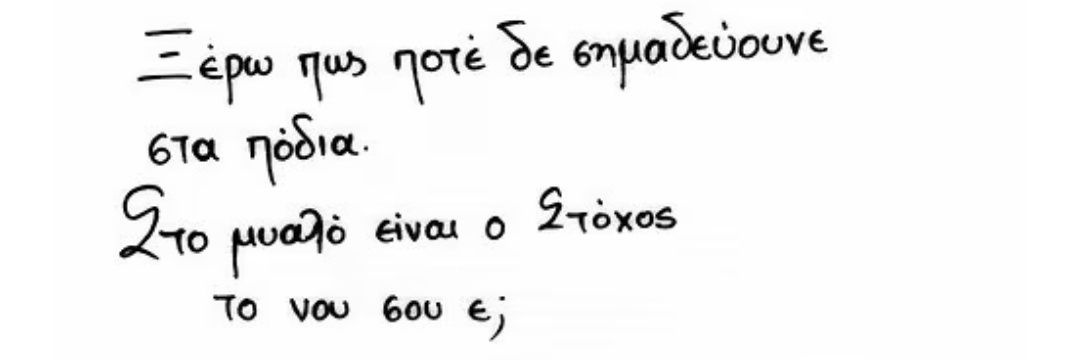 Ξέρω πως ποτέ δε σημαδεύουνε
στα πόδια.
Στο μυαλό είναι ο Στόχος
το νου σου ε;